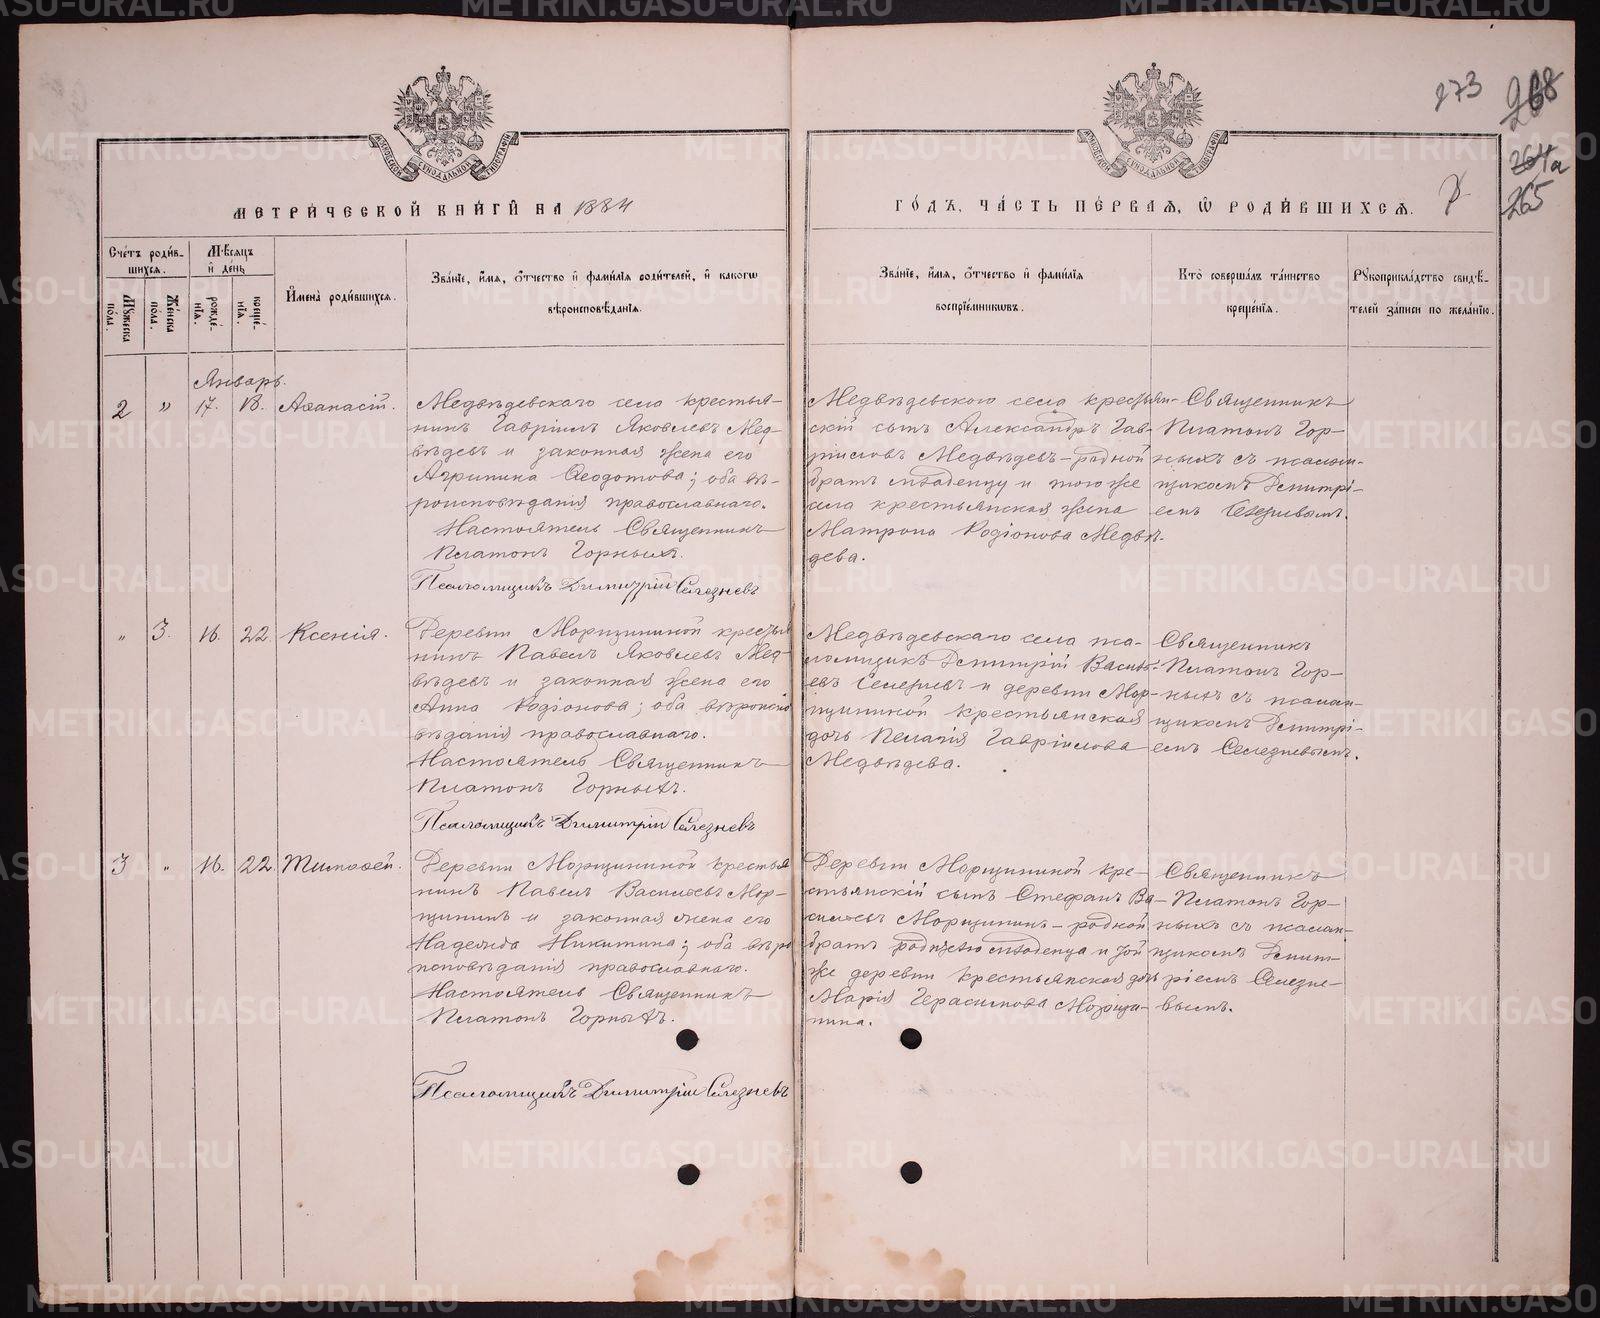 273
268
264а
265
МОСКОВСКОЙ СѴНОДАЛЬНОЙ ТИПОГРАФІИ
МОСКОВСКОЙ СѴНОДАЛЬНОЙ ТИПОГРАФІИ
МЕТРИ́ЧЕСКОЙ КНИ́ГИ НА 1884
ГО́ДЪ, ЧА́СТЬ ПЕ́РВАЯ, Ѡ РОДИ́ВШИХСЯ.
Сче́тъ роди́в-
шихся.
Мѣ́сяцъ
и́ де́нь
Мꙋ́жеска по́ла.
Же́нска по́ла.
рожде́нїѧ.
креще́нїѧ.
И҆мена̀ роди́вшихся.
Зва́нїе, и҆́мѧ, ѻ҆́тчество и҆ фами́лїѧ роди́телей, и҆ како́гѡ
вѣроисповѣ́данїѧ.
Зва́нїе, и҆́мѧ, ѻ҆́тчество и҆ фами́лїѧ
воспрїе́мникѡвъ.
Кто̀ соверша́лъ та́инство
креще́нїѧ.
Рꙋкоприкла́дство свидѣ́-
телей за́писи по жела́нїю.
Январь.
2 „ 17. 18. Аѳанасій.
Медвѣдевскаго села крестья-
нинъ Гавріилъ Яковлевъ Мед-
вѣдевъ и законная жена его
Агрипина Ѳеодотова; оба вѣ-
роисповѣданія православнаго.
Настоятель Священникъ
Платонъ Горныхъ.
Псаломщикъ Димитрій Селезневъ
Медвѣдевского села крестьян-
скій сынъ Александръ Гав-
рииловъ Медвѣдевъ - родной
братъ младенцу и того же
села крестьянская жена
Матрона Родіонова Медвѣ-
дева.
Священникъ
Платонъ Гор-
ныхъ съ псалом-
щикомъ Димитрі-
емъ Селезневымъ.
„ 3. 16. 22 Ксенія.
Деревни Морщининой крестья
нинъ Павелъ Яковлевъ Мед-
вѣдевъ и законная жена его
Анна Родіонова; оба вѣроиспо
вѣданія православнаго.
Настоятель Священникъ
Платонъ Горныхъ.
Псаломщикъ Димитрій Селезневъ
Медвѣдевскаго села пса-
ломщикъ Димитрій Василь-
евъ Селезневъ и деревни Мор-
щининой крестьянская
дочь Пелагія Гавріилова
Медвѣдева.
Священникъ
Платонъ Гор-
ныхъ съ псалом-
щикомъ Димитрі-
емъ Селезневымъ.
3 „ 16. 22 Тимоѳей.
Деревни Морщининой крестья
нинъ Павелъ Васильевъ Мор-
щининъ и законная жена его
Надежда Никитина; оба вѣро
исповѣданія православнаго.
Настоятель Священникъ
Платонъ Горныхъ.
Псаломщикъ Димитрій Селезневъ
Деревни Морщининой кре-
стьянскій сынъ Стефанъ Ва-
сильевъ Морщининъ - родной
братъ родителю младенца и той
же деревни крестьянская дочь
Марія Герасимова Морщи-
нина.
Священникъ
Платонъ Гор-
ныхъ съ псалом-
щикомъ Димит-
ріемъ Селезне-
вымъ.
METRIKI.GASO-URAL.RU